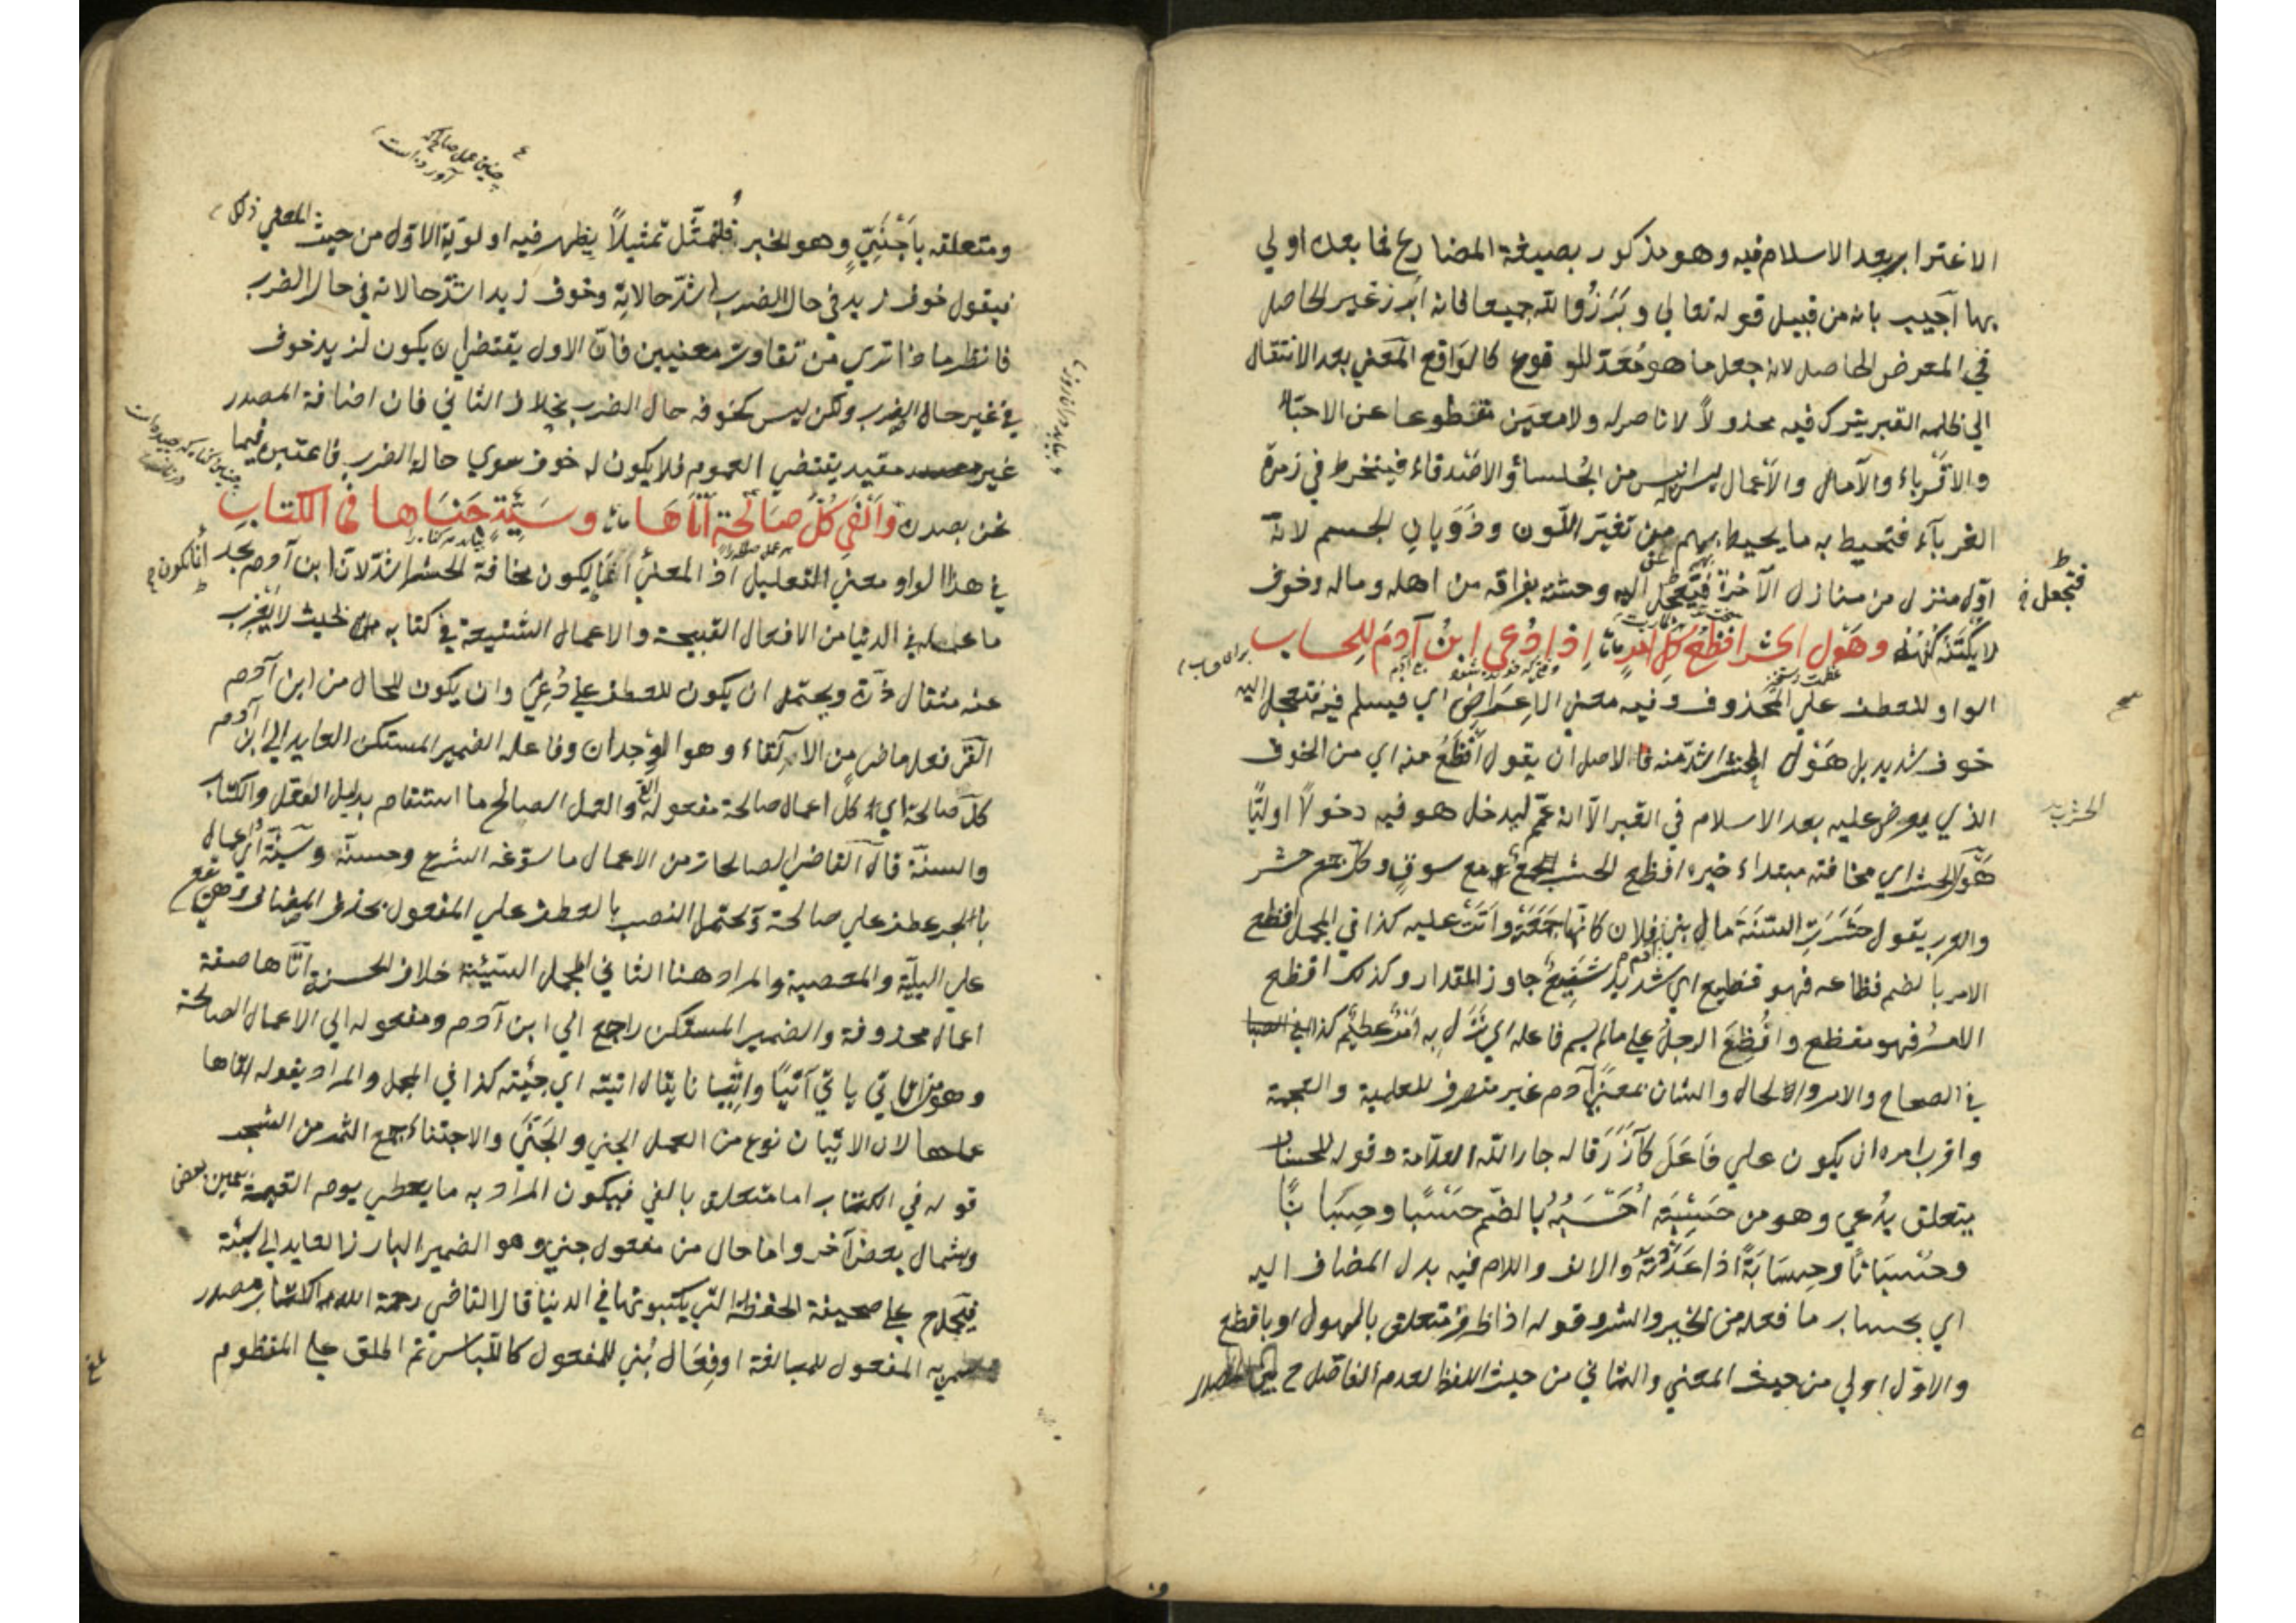 الاغترابر بعد الاسلام فيه وهو مذكور بصيغة المضارع فما بعده اولي
بها اجيب بانه من قبيل قوله تعالي وبرزوا لله جميعا فانه ابرز غير الحاصل
في المعرض الحاصل لانه جعل ما هو معدّ للوقوع كالواقع المعني بعد الانتقال
الي ظلمه القبر يترك فيه مخذولاً لا ناصر له ولا معين منقطوعا عن الاحبّاء
والاقرباء والآمال والأعمال ليس انيس من الجلساء والاصدقاء فينخرط في زمرة
الغرباء فتحيط به ما يحيط بهم من تغيّر اللّون وذوبان الجسم لانّه
اوّل منزل من منازل الآخرة فيتعجل اليه وحشة بفراقه من اهله وماله وخوف
لا يكتنه كنهه وهول الحشر افظع كلّ امر اذا دعي ابن آدم للحساب
الواو للعطف علي المحذوف وفيه معني الاعراض اي فيسلم فيه فتعجل اليه
خوف شديد بل هول الحشر اشدّ منه فالاصل ان يقول افظع منه اي من الخوف
الذي يعرض عليه بعد الاسلام في القبر الّا انه عمّم ليدخل هو فيه دخولاً اوليًّا
هول الحشر اي مخافته مبتداء خبره افظع الحشر الجمع مع سوق وكلّ جمع حشر
والعرب يقول حشرت السنة مال بني فلان كانّها جمعته واتت عليه كذا في المجمل افظع
الامر بالضم فظاعه فهو فظيع اي شديد شنيع جاوز المقدار وكذلك افظع
الامر فهو مفظع وافظع الرجل علي ما لم يسم فاعله اي نزل به امر عظيم كذا
في الصحاح والامر والحال والشان بمعني آدم غير منصرف للعلمية والعجمة
واقرب امره ان يكون علي فاعل كآزر قاله جار الله العلّامة وقوله للحساب
يتعلق بدعي وهو من حسبته احسبه بالضّم حسبًا وحسبانًا
وحسبانًا وحسابة اذا عددته والالف واللام فيه بدل المضاف اليه
اي بحساب ما فعله من الخير والشر وقوله اذا ظرف متعلق بالهول او بافظع
والاوّل اولي من حيث المعني والثاني من حيث اللفظ لعدم الفاصل
فتجعل
ومتعلقه باجنبيّ وهو الخبر فلتمثّل تمثيلاً يظهر فيه اولويّة الاوّل من حيث المعني ذلك
فيقول خوف زيد في حال الضرب اشدّ حالاته وخوف زيد اشدّ حالاته في حال الضرب
فانظر ماذا تري من تفاوت معنيين فانّ الاول يقتضي ان يكون لزيد خوف
في غير حال الضرب ولكن ليس كخوفه حال الضرب بخلاف الثاني فان اضافة المصدر
غير مقيد يقتضي العموم فلا يكون له خوف سوي حال الضرب فاعتبر فيما
نحن بصدده والفي كلّ صالحة اتاها وسيّئة جناها في الكتاب
في هذا الواو معني التعليل اذ المعني انما يكون مخافة الحشر اشدّ لانّ ابن آدم يجد
ما عمله في الدنيا من الافعال القبيحة والاعمال الشنيعة في كتابه بحيث لا يعزب
عنه مثقال ذرة ويحتمل ان يكون للعطف علي دعي وان يكون للحال من ابن آدم
الفي فعل ماض من الالقاء وهو الوجدان وفاعله الضمير المستكن العايد الي ابن آدم
كلّ صالحة اي كل اعمال صالحة مفعوله والعمل الصالح ما استقام بدليل العقل والكتاب
والسنّة قال القاضي الصالحات من الاعمال ما سوّغه الشرع وحسنّه وسيئة اي اعمال
بالجر عطف علي صالحة ويحتمل النصب بالعطف علي المفعول بحذف المضاف وهي تقع
علي البليّة والمعصية والمراد هنا الثاني في المجمل السّيّئة خلاف الحسنة اتاها صفة
اعمال محذوفة والضمير المستكن راجع الي ابن آدم ومفعوله الي الاعمال الصالحة
وهو من اتي ياتي اتيًا واتيانا يقال اتيته اي جيئته كذا في المجمل والمراد بقوله اتاها
عملها لان الاتيان نوع من العمل الجني والجَنَي والاجتناء جمع الثمر من الشجر
قوله في الكتاب اما متعلق بالفي فيكون المراد به ما يعطي يوم القيمة بيمين بعض
وبشمال بعض آخر واما حال من مفعول جني وهو الضمير البارز العايد الي سيئة
فيحمل ح علي صحيفة الحفظة التي يكتبونها في الدنيا قال القاضي رحمة الله الكتاب مصدر
سمي به المفعول للمبالغة او فعال بني للمفعول كاللباس ثم اطلق علي المنظوم
چنين عمل صالح كه
آورده است